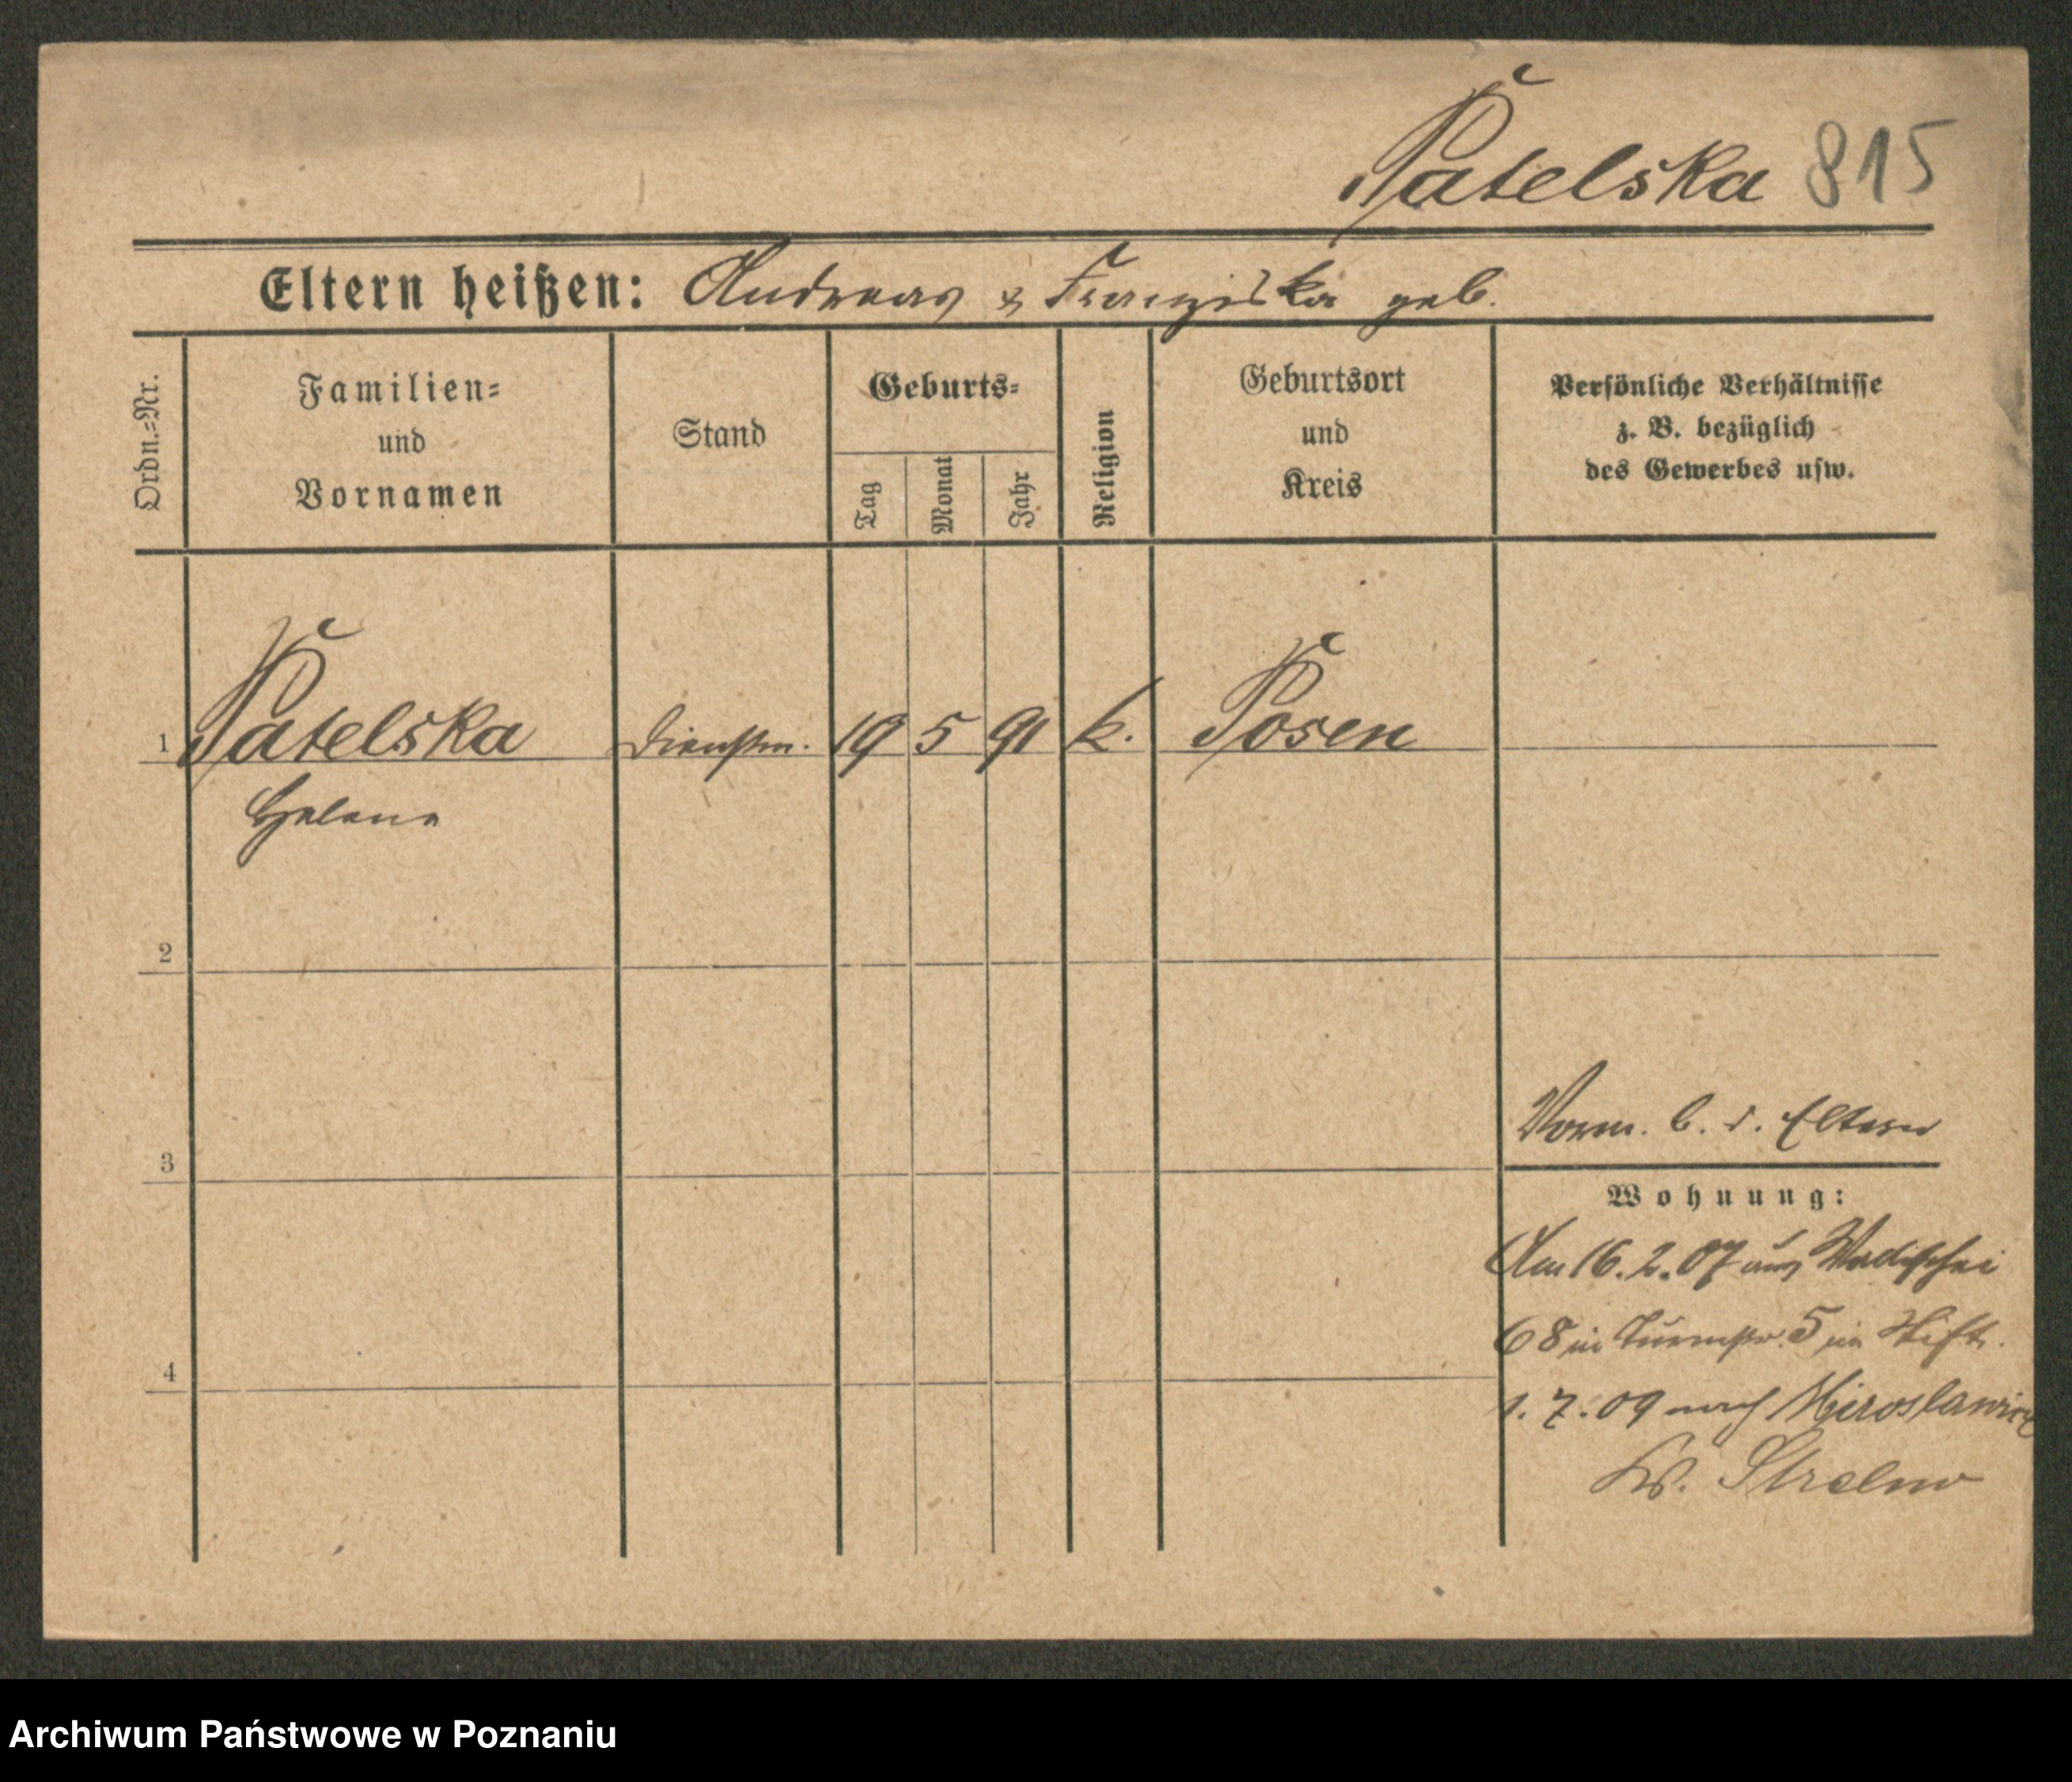 Patelska 815
Eltern heißen: Andreas & Franziska geb.
Ordn.=Nr.
Familien=
und
Vornamen
Stand
Geburts=
Tag
Monat
Jahr
Religion
Geburtsort
und
Kreis
Persönliche Verhältnisse
z. B. bezüglich
des Gewerbes usw.
1 Patelska Dienstm. 19 5 91 k. Posen
Helene
2
3
Vorm. b. d. Eltern
Wohnung:
Am 16.2.07 aus Wallischei
68 in Turmstr. 5 in Stift.
4
1.7.09 nach Miroslawitz
Kr. Strelno
Archiwum Państwowe w Poznaniu